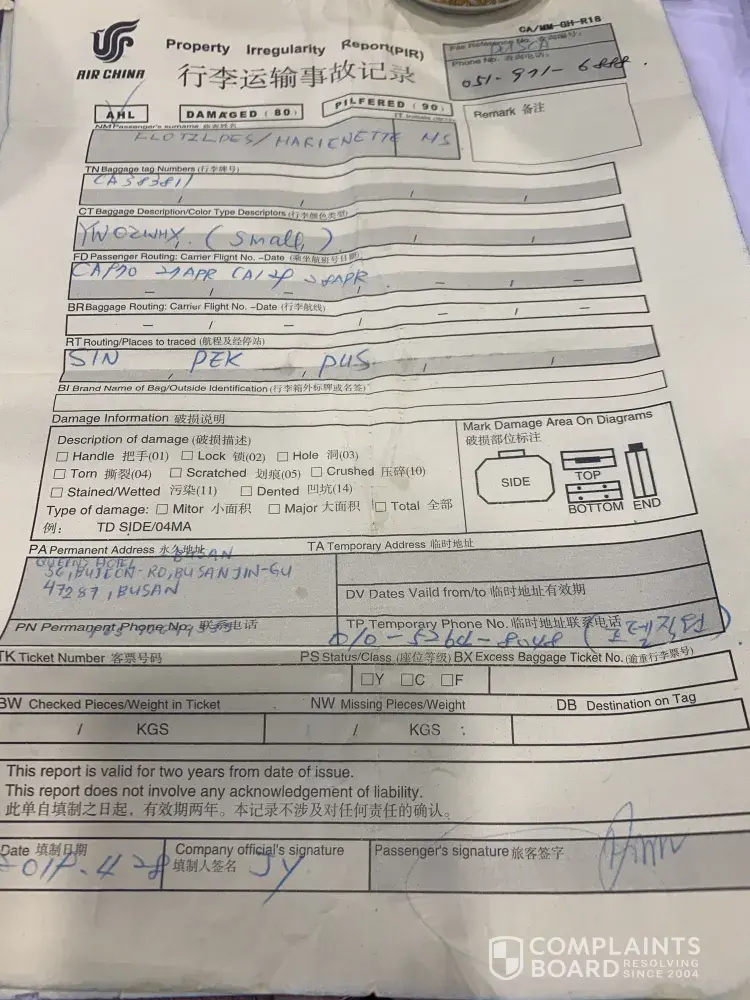 CA/MM-GH-R18
AIR CHINA
Property Irregularity Report(PIR)
行李运输事故记录
File Reference No. 查询编号:
Phone No. 查询电话:
051-971-6888.
AHL DAMAGED ( 80 ) PILFERED ( 90 )
Remark 备注
NM Passenger's surname 旅客姓名
MS
TN Baggage tag Numbers (行李牌号)
CA383811
/ / / /
CT Baggage Description/Color Type Descriptors (行李颜色类型)
YW02WHX. (small)
/ / / /
FD Passenger Routing: Carrier Flight No. –Date (乘坐航班号日期)
BR Baggage Routing: Carrier Flight No. –Date (行李航线)
RT Routing/Places to traced (航程及经停站)
SIN PEK PUS
BI Brand Name of Bag/Outside Identification (行李箱外标牌或名签)
Damage Information 破损说明
Description of damage (破损描述)
□ Handle 把手(01) □ Lock 锁(02) □ Hole 洞(03)
□ Torn 撕裂(04) □ Scratched 划痕(05) □ Crushed 压碎(10)
□ Stained/Wetted 污染(11) □ Dented 凹坑(14)
Type of damage: □ Mitor 小面积 □ Major 大面积 □ Total 全部
例: TD SIDE/04MA
Mark Damage Area On Diagrams
破损部位标注
SIDE
TOP
BOTTOM END
PA Permanent Address 永久地址
BUSAN
QUEENS HOTEL
BUJEON-RO, BUSANJIN-GU
47287, BUSAN
TA Temporary Address 临时地址
DV Dates Vaild from/to 临时地址有效期
PN Permanent Phone No. 联系电话
TP Temporary Phone No. 临时地址联系电话
TK Ticket Number 客票号码
PS Status/Class (座位等级) BX Excess Baggage Ticket No. (逾重行李票号)
□Y □C □F
BW Checked Pieces/Weight in Ticket
NW Missing Pieces/Weight
DB Destination on Tag
/ KGS
/ KGS :
This report is valid for two years from date of issue.
This report does not involve any acknowledgement of liability.
此单自填制之日起，有效期两年。本记录不涉及对任何责任的确认。
Date 填制日期
Company official's signature
填制人签名
JY
Passenger's signature 旅客签字
COMPLAINTS
BOARD RESOLVING
SINCE 2004